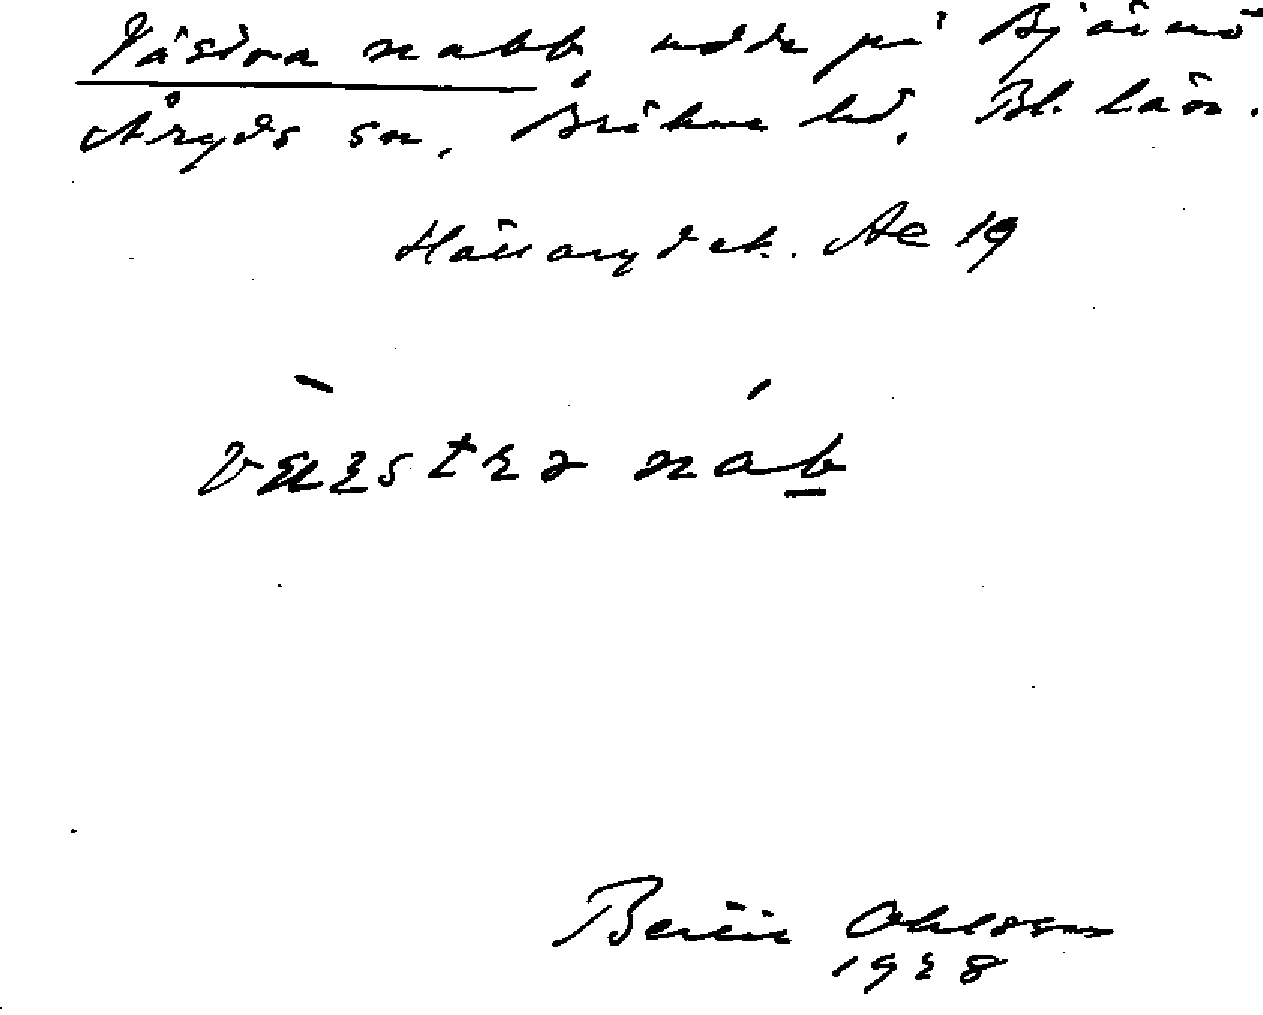 Västra nabb, udde på Bjärnö
Åryds sn, Bräkne hd, Bl. län.
Hällaryd ek. Ae 19
nab
Bertil Ohlsson
1928